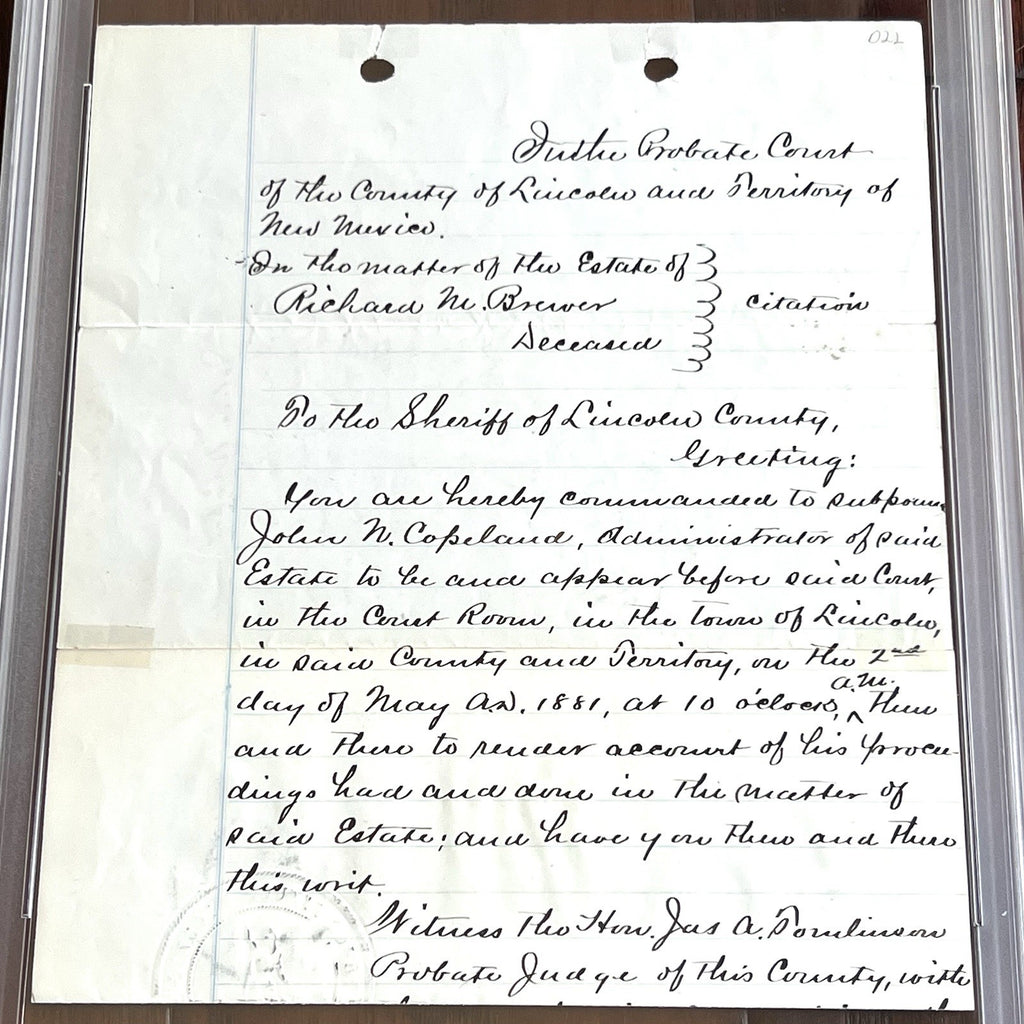 022
In the Probate Court
of the County of Lincoln and Territory of
New Mexico.
In the matter of the Estate of
Richard M. Brewer
Deceased
Citation
To the Sheriff of Lincoln County,
Greeting:
You are hereby commanded to subpoena
John N. Copeland, Administrator of said
Estate to be and appear before said Court,
in the Court Room, in the town of Lincoln,
in said County and Territory, on the 2nd
day of May A.D. 1881, at 10 o'clock, a.m. then
and there to render account of his procee-
dings had and done in the matter of
said Estate; and have you then and there
this writ.
Witness the Hon. Jas A. Tomlinson
Probate Judge of this County, with